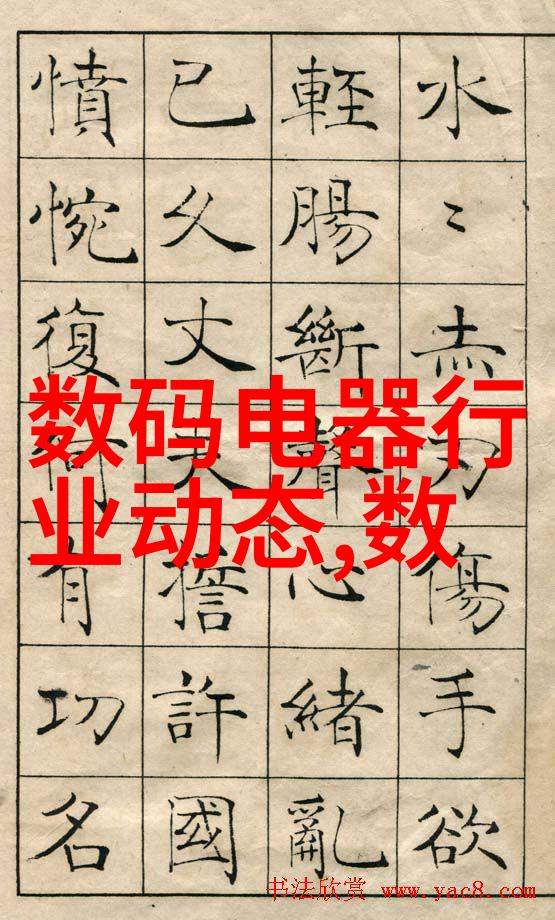 水〻赤刃傷手欲
輕腸斷聲心緒亂
已久丈夫誓許國
憤惋復何有功名
数码电器行
业动态,数
书法欣赏 www.yac8.com